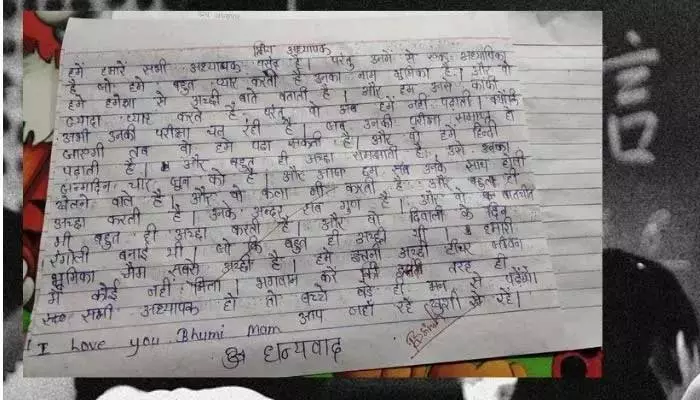 प्रिय अध्यापक
हमें हमारे सभी अध्यापक पसंद है। परंतु उनमें से एक अध्यापिका
है जो हमें बहुत प्यार करती है उनका नाम भूमिका है। और वो
हमें हमेशा से अच्छी बाते बताती है। और हम उनसे काफी
ज्यादा प्यार करते है परंतु वो अब हमें नहीं पढ़ाती। क्योंकि
अभी उनकी परीक्षा चल रही है। जब उनकी परीक्षा समाप्त हो
जाएगी तब वो हमे पढा सकती है। और वो हमें हिन्दी
पढ़ाती है। और बहुत ही अच्छा समझाती है। उसे उनका
जन्मदिन चार जून को है। और आपा हम सब उनके साथ होली
खेलने वाले है और वो कला भी करती है और बहुत ही
अच्छा करती है। उनके अन्दर सब गुण है। और वो बातचीत
भी बहुत ही अच्छा करती है। और वो दिवाली के दिन
रंगोली बनाई थी। जो कि बहुत ही अच्छी थी। हमारी
भूमिका मैम सबसे अच्छी है। हमें इतनी अच्छी टीचर जीवन
में कोई नहीं मिला। भगवान करें कि इनकी तरह ही
सभी अध्यापक हो तो बच्चे बड़े ही मन से पढ़ेंगे।
आप जहाँ रहें खुशी से रहें।
I Love you Bhumi Mam
धन्यवाद